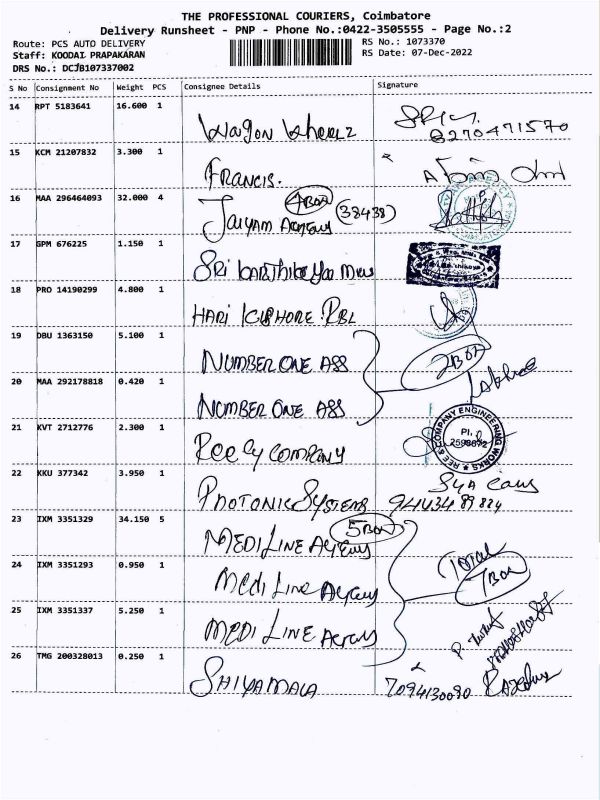 THE PROFESSIONAL COURIERS, Coimbatore
Delivery Runsheet - PNP - Phone No.:0422-3505555 - Page No.:2
Route: PCS AUTO DELIVERY
RS No.: 1073370
Staff: KOODAI PRAPAKARAN
RS Date: 07-Dec-2022
DRS No.: DCJB107337002
S No Consignment No Weight PCS Consignee Details Signature
14 RPT 5183641 16.600 1
8270471570
15 KCM 21207832 3.300 1
FRANCIS.
16 MAA 296464093 32.000 4
4BOX
JAIYAM Agency (38438)
17 GPM 676225 1.150 1
SRI
18 PRO 14190299 4.800 1
HARI KISHORE RBL
19 DBU 1363150 5.100 1
NUMBER ONE ASS 2BOX
20 MAA 292178818 0.420 1
NUMBER ONE ASS
21 KVT 2712776 2.300 1
REE & COMPANY ENGINEERING WORKS
Ree Cy COMPANY
22 KKU 377342 3.950 1
PHOTONIC SYSTEMS
23 IXM 3351329 34.150 5
5BOX
MEDI LINE Agency
24 IXM 3351293 0.950 1
Total
7BOX
MEDI LINE Agency
25 IXM 3351337 5.250 1
MEDI LINE Agency
26 TMG 200328013 0.250 1
SHIYAMALA 7094130090